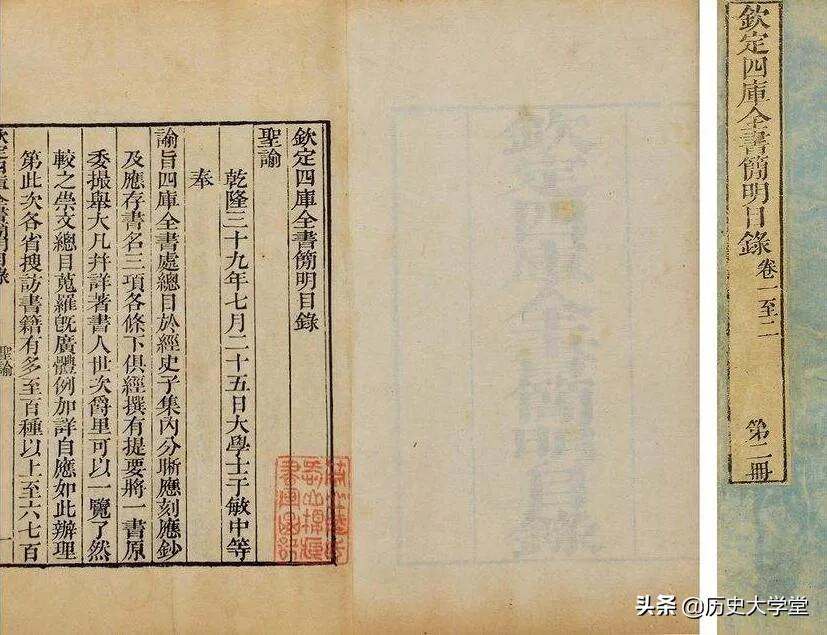 欽定四庫全書簡明目錄
聖諭
乾隆三十九年七月二十五日大學士于敏中等
奉
諭旨四庫全書處總目於經史子集內分晰應刻應鈔
及應存書名三項各條下俱經撰有提要將一書原
委撮舉大凡并詳著書人世次爵里可以一覽了然
較之崇文總目蒐羅旣廣體例加詳自應如此辦理
第此次各省搜訪書籍有多至百種以上至六七百
欽定四庫全書簡明目錄
聖諭
一
欽定四庫全書簡明目錄
欽定四庫全書簡明目錄 卷一至二
第二冊
头条 @历史大学堂